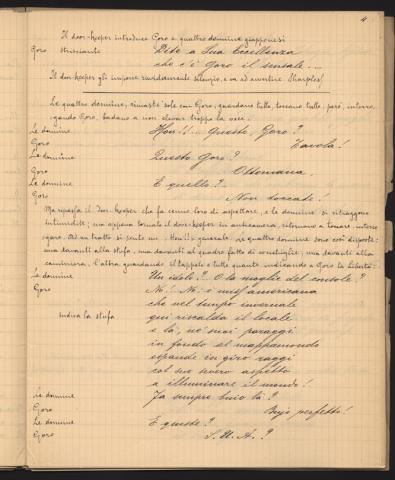 4
Il door-keeper introduce Goro e quattro dominine giapponesi
Goro strisciante Dite a Sua Eccellenza
che c'è Goro il sensale...
Il door-keeper gli impone ruvidamente silenzio, e va ad avvertire Sharpless
Le quattro domine, rimaste sole con Goro, guardano tutto, toccano tutto, però, interro-
gando Goro, badano a non elevar troppo la voce.
Le domine Hou!... Questo, Goro?
Goro Tavola!
Le domine Questo Goro?
Goro Ottomana.
Le domine E quello?
Goro Non toccate!
Ma ripassa il door-keeper che fa cenno loro di aspettare, e le domine si ritraggono
intimidite; ma appena tornato il door-keeper in anticamera, ritornano a
Goro. Ad un tratto si sente un: Hou!!! generale. Le quattro domine sono così disposte:
una davanti alla stufa, una davanti al quadro fatto di conchiglie, una davanti alla
l'altra guardando il tappeto e tutte quante indicando a Goro la Libertà:
Le domine Un idolo?.. O la moglie del console?
Goro No! No: è miss americana
che nel tempo invernale
indica la stufa qui riscalda il locale
e là, ne' suoi paraggi
in fondo al mappamondo
espande in giro raggi
col suo severo aspetto
a illuminare il mondo!
Le domine Fa sempre buio là?
Goro Bujo perfetto!
Le domine E queste?
Goro S. U. A.?